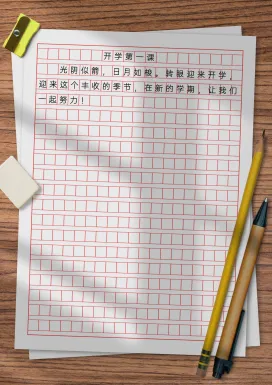 开学第一课
光阴似箭，日月如梭。转眼迎来开学，
迎来这个丰收的季节，在新的学期，让我们
一起努力！